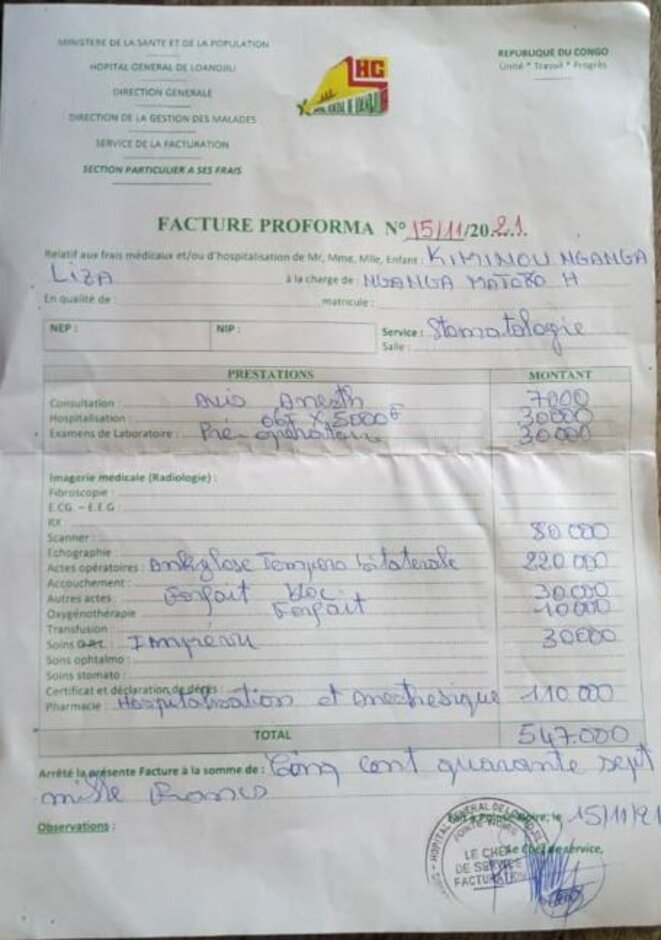 MINISTERE DE LA SANTE ET DE LA POPULATION
HOPITAL GENERAL DE LOANDJILI
DIRECTION GENERALE
DIRECTION DE LA GESTION DES MALADES
SERVICE DE LA FACTURATION
SECTION PARTICULIER A SES FRAIS
HG
REPUBLIQUE DU CONGO
Unité * Travail * Progrès
FACTURE PROFORMA N° 15/11/2021
Relatif aux frais médicaux et/ou d'hospitalisation de Mr, Mme, Mlle, Enfant : KIMINOU NGANGA
LIZA à la charge de : NGANGA MATOKO H
En qualité de : matricule :
NEP : NIP : Service : Stomatologie
Salle :
PRESTATIONS MONTANT
Consultation : Avis Anesth 7000
Hospitalisation : 06j X 5000F 30000
Examens de Laboratoire : Pré-opératoire 30000
Imagerie médicale (Radiologie) :
Fibroscopie :
E.CG - E.E.G :
RX :
Scanner : 80 000
Echographie :
Actes opératoires : Ankylose Temporo bilaterale 220 000
Accouchement :
Autres actes : Forfait bloc 30 000
Oxygénothérapie Forfait 10 000
Transfusion :
Soins Imprévu 30000
Sons ophtalmo :
Soins stomato :
Certificat et déclaration de décès
Pharmacie : Hospitalisation et Anesthesique 110 000
TOTAL 547.000
Arrêté la présente Facture à la somme de : Cinq cent quarante sept
mille Francs
Observations :
Fait à Pointe-Noire, le 15/11/21
Le Chef de service,
HOPITAL GENERAL DE LOANDJILI
POINTE NOIRE
LE CHEF
DE SERVICE
FACTURATION